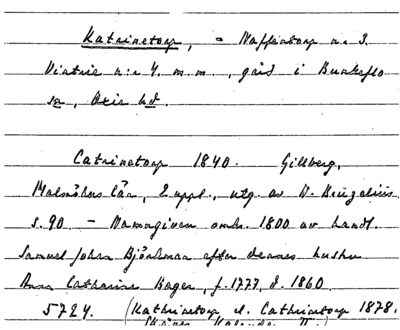 Katrinetorp, = Naffentorp n:r 3.
Vintrie n:r 4. m.m., gård i Bunkeflo
sn, Oxie hd.
Catrinetorp 1840. Gillberg,
Malmöhus län, 2 uppl., utg. av N. Bruzelius
s. 90 – Namngiven omkr. 1800 av handl.
Samuel Johan Björkman efter dennes hustru
Anna Catharina Bager, f. 1777, d. 1860.
5724. (Kathrinetorp el. Cathrinetorp 1878.